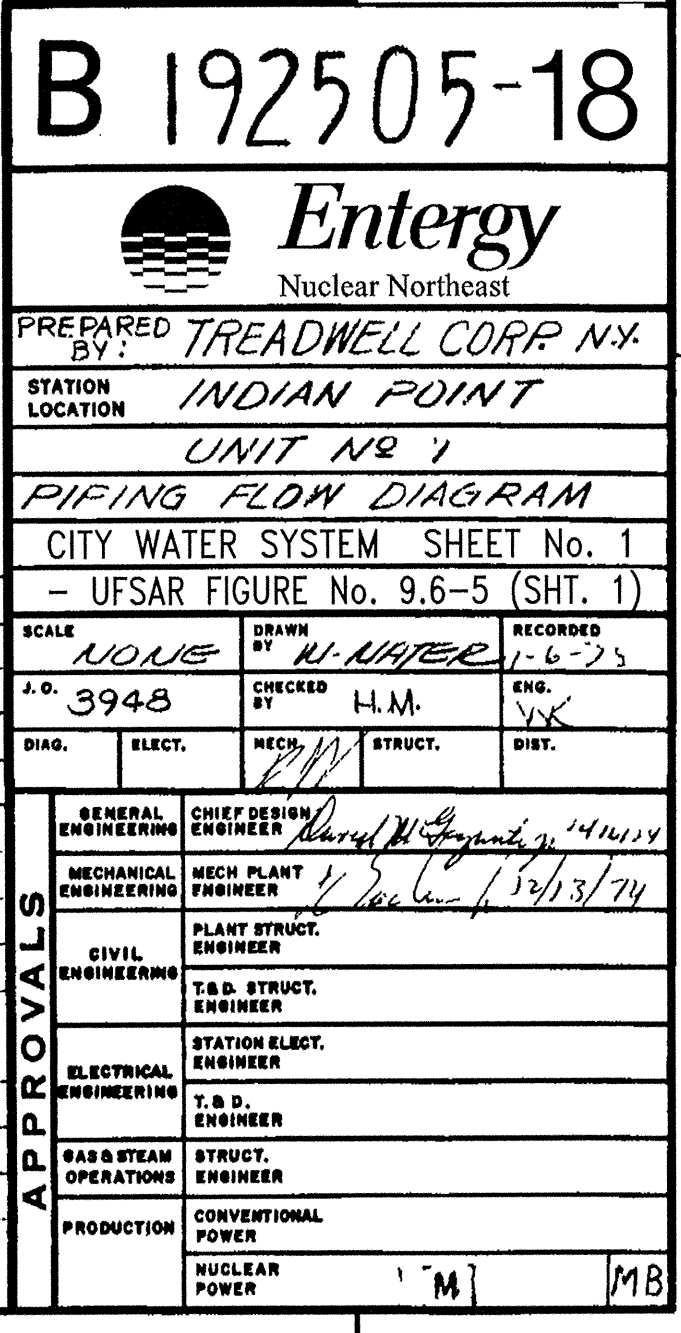 B 192505-18
Entergy
Nuclear Northeast
PREPARED BY: TREADWELL CORP. N.Y.
STATION LOCATION INDIAN POINT
UNIT Nº 1
PIPING FLOW DIAGRAM
CITY WATER SYSTEM SHEET No. 1
- UFSAR FIGURE No. 9.6-5 (SHT. 1)
SCALE NONE DRAWN BY W. NATER RECORDED 1-6-75
J.O. 3948 CHECKED BY H.M. ENG.
DIAG. ELECT. MECH. STRUCT. DIST.
APPROVALS
GENERAL ENGINEERING CHIEF DESIGN ENGINEER
MECHANICAL ENGINEERING MECH PLANT ENGINEER 12/13/74
CIVIL ENGINEERING PLANT STRUCT. ENGINEER
T.& D. STRUCT. ENGINEER
ELECTRICAL ENGINEERING STATION ELECT. ENGINEER
T. & D. ENGINEER
GAS & STEAM OPERATIONS STRUCT. ENGINEER
PRODUCTION CONVENTIONAL POWER
NUCLEAR POWER MB